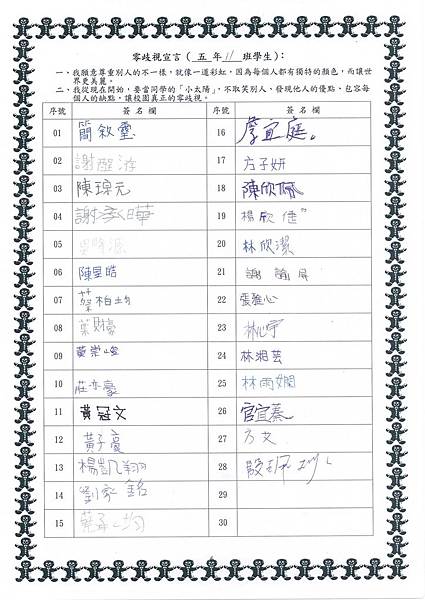 零歧視宣言（五年11班學生）：
一、我願意尊重別人的不一樣，就像一道彩虹，因為每個人都有獨特的顏色，而讓世
界更美麗。
二、我從現在開始，要當同學的「小太陽」，不取笑別人，發現他人的優點，包容每
個人的缺點，讓校園真正的零歧視。
序號 簽名欄 序號 簽名欄
01 簡敘 16 宜庭
02 謝 17 方子妍
03 陳琮元 18 陳欣佩
04 謝承曄 19 楊欣佳
05 20 林欣潔
06 陳昱皓 21 謝
07 蔡柏均 22 張雅心
08 葉財豪 23 林心宇
09 黃崇峻 24 林湘芸
10 莊亦豪 25 林雨嫻
11 黃冠文 26 官宜蓁
12 黃子豪 27 方文
13 楊凱翔 28 殷
14 劉家銘 29
15 均 30